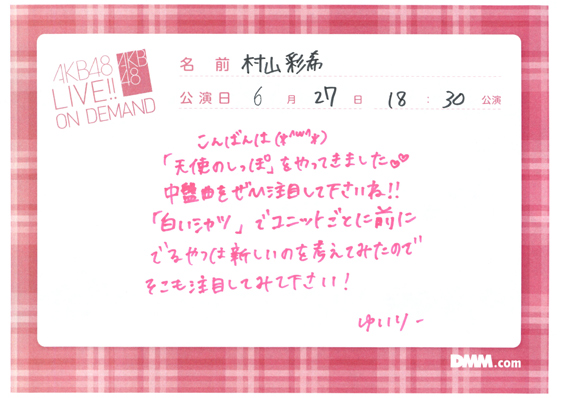 AKB48
LIVE!!
ON DEMAND
AKB
48
名前 村山彩希
公演日 6月27日 18:30公演
こんばんは(*^w^*)
「天使のしっぽ」をやってきました♡♡
中盤曲をぜひ注目して下さいね!!
「白いシャツ」でユニットごとに前に
でるやつは新しいのを考えてみたので
そこも注目してみて下さい!
ゆいりー
DMM.com